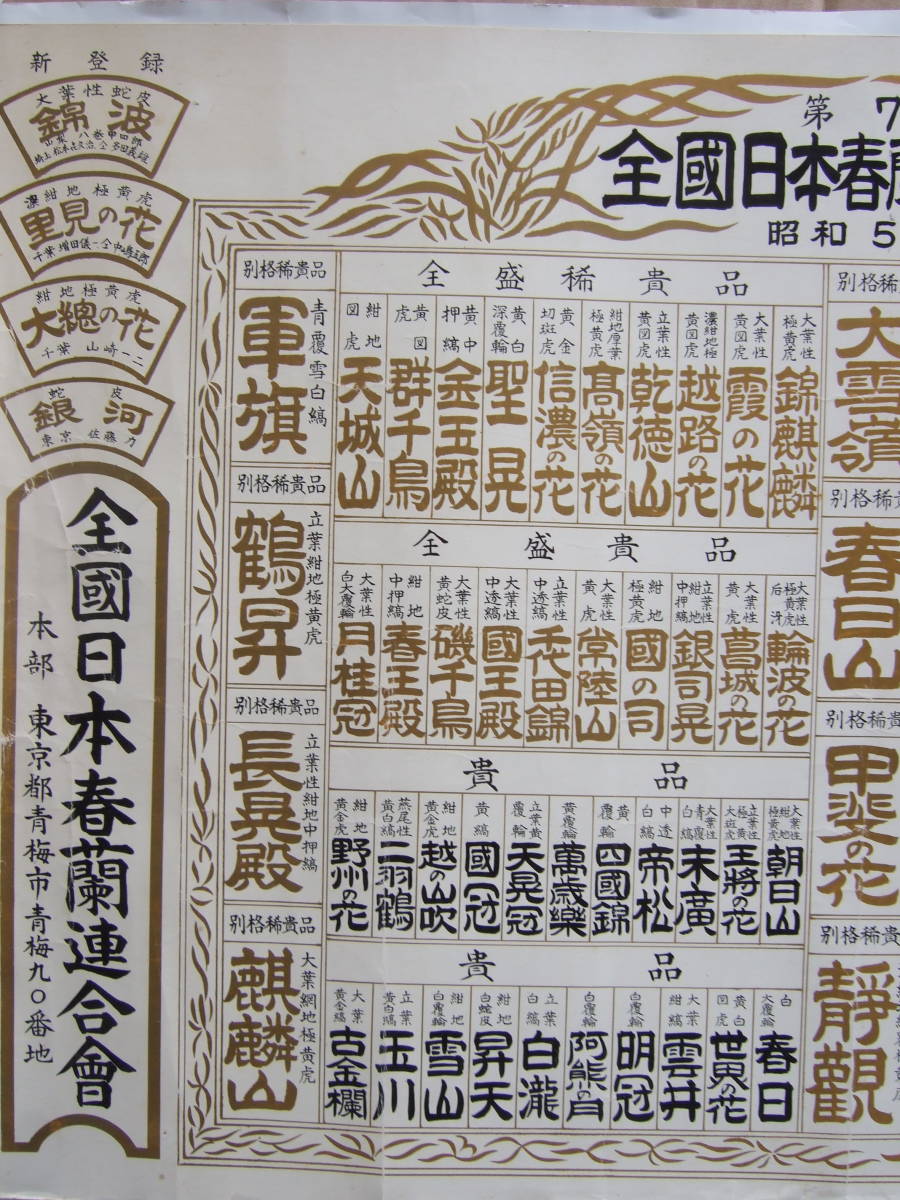 第 7
全國日本春
昭和5
別格稀
大雪嶺
別格稀貴
春日山
別格稀貴
甲斐の花
別格稀貴
靜觀
全盛稀貴品
大葉性
極黄虎
錦麒麟
大葉性
黄図虎
霞の花
濃紺地極
黄図虎
越路の花
立葉性
黄図虎
乾徳山
紺地厚葉
極黄虎
高嶺の花
黄金
切斑虎
信濃の花
黄白
深覆輪
聖晃
黄中
押縞
金玉殿
黄図
虎
群千鳥
紺地
図虎
天城山
全盛貴品
大葉性
極黄虎
后牙
輪波の花
大葉性
黄虎
菖城の花
立葉性
紺地
中押縞
銀司晃
紺地
極黄虎
國の司
大葉性
黄虎
常陸山
立葉性
中透縞
千代田錦
大葉性
中透縞
國王殿
大葉性
黄蛇皮
磯千鳥
紺地
中押縞
春王殿
大葉性
白大覆輪
月桂冠
貴品
大葉性
紺地
極黄虎
朝日山
立葉性
極黄
大斑虎
王將の花
大葉性
青覆
白縞
末廣
中透
白縞
帝松
黄
覆輪
四國錦
黄覆輪
萬歳樂
立葉黄
覆輪
天晃冠
黄縞
國冠
紺地
黄金虎
越の山吹
燕尾性
黄白縞
二羽鶴
紺地
黄金虎
野州の花
貴品
白
大覆輪
春日
黄白
図虎
世界の花
大葉
紺縞
雲井
白覆輪
明冠
白覆輪
阿熊の月
立葉
白縞
白瀧
紺地
白蛇皮
昇天
紺地
白覆輪
雪山
立葉
黄白縞
玉川
大葉
黄金縞
古金欄
別格稀貴品
青覆雪白縞
軍旗
別格稀貴品
立葉紺地極黄虎
鶴昇
別格稀貴品
立葉性紺地中押縞
長晃殿
別格稀貴品
大葉網地極黄虎
麒麟山
新登録
大葉性蛇皮
錦波
山梨 八巻甲四郎
濃紺地極黄虎
里見の花
千葉 増田儀一
紺地極黄虎
大總の花
千葉 山崎一二
蛇皮
銀河
東京 佐藤力
全國日本春蘭連合會
本部 東京都青梅市青梅九〇番地